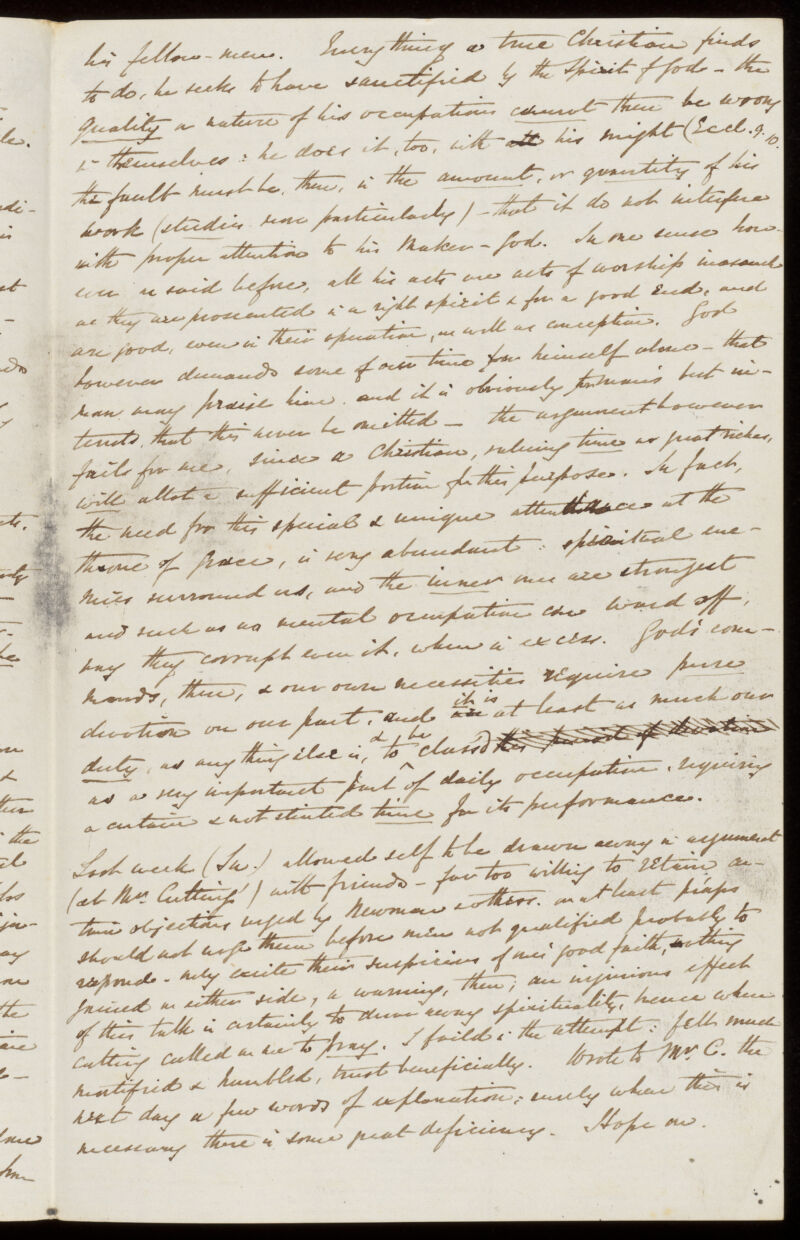 his fellow-men. Everything a true Christian finds
to do, he seeks to have sanctified by the Spirit of God - the
quality or nature of his occupations cannot then be wrong
in themselves: he does it, too, with all his might (Eccl. 9. 10.
the fault must be, then, in the amount, or quantity of his
work (studies more particularly) - that it do not interfere
with proper attention to his Maker - God. In one sense how-
ever as said before, all his acts are acts of worship inasmuch
as they are prosecuted in a right spirit & for a good end, and
are good, even in their operation, as well as conception. God
however demands some of our time for himself alone - that
man may praise him. and it is obviously for man's best in-
terests, that this never be omitted - the argument however
fails for me, since a Christian, valuing time as great riches,
will allot a sufficient portion for this purpose. In fact,
the need for this special & unique attendance at the
throne of grace, is very abundant: spiritual ene-
mies surround us, and the inner ones are strongest
and such as no mental occupation can ward off,
nay they corrupt even it, when in excess. God's com-
mands, then, & our own necessities require pure
devotion on our part, and it is at least as much our
duty, as anything else is, & to be class'd this period of devotion
as a very important part of daily occupation, requiring
a certain & not stinted time for its performance.
Last week (Su.) allowed self to be drawn away in argument
(at Mr. Cutting's) with friends - far too willing to retain cer-
tain objections urged by Newman & others. or at least p'haps
should not urge them before men not qualified probably to
respond - only excite their suspicions of one's good faith, nothing
gained on either side, a warning, then; an injurious effect
of this talk is certainly to draw away spirituality, hence when
Cutting called on me to pray. I fail'd in the attempt: felt much
mortified & humbled, trust beneficially. Wrote to Mr. C. the
next day a few words of explanation: surely when this is
necessary there is some great deficiency. Hope on.